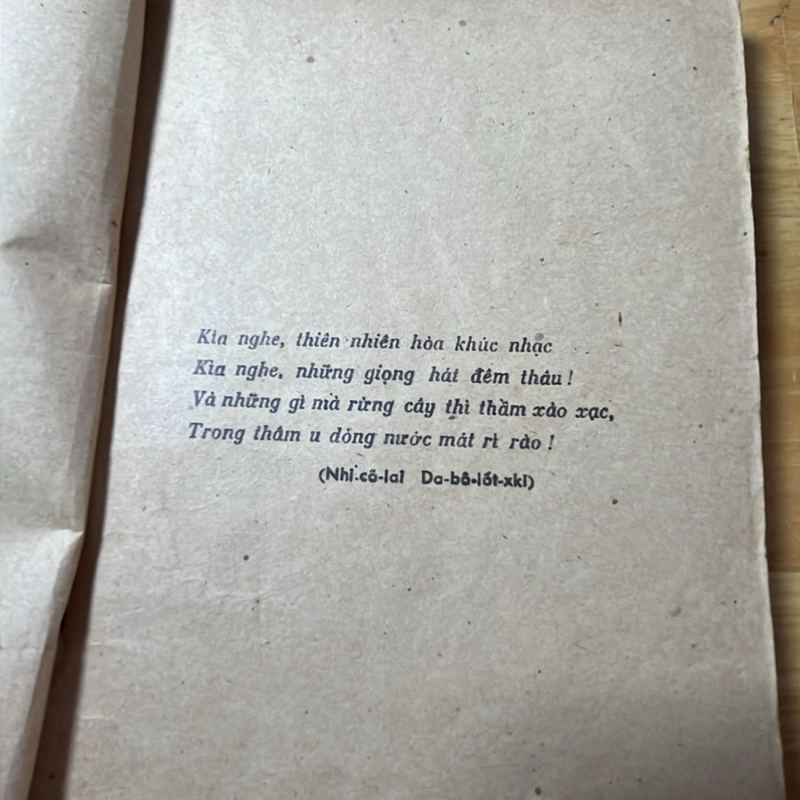 Kìa nghe, thiên nhiên hòa khúc nhạc
Kìa nghe, những giọng hát đêm thâu !
Và những gì mà rừng cây thì thầm xào xạc,
Trong thâm u dòng nước mát rì rào !
(Nhi-cô-lai Da-bô-lốt-xki)